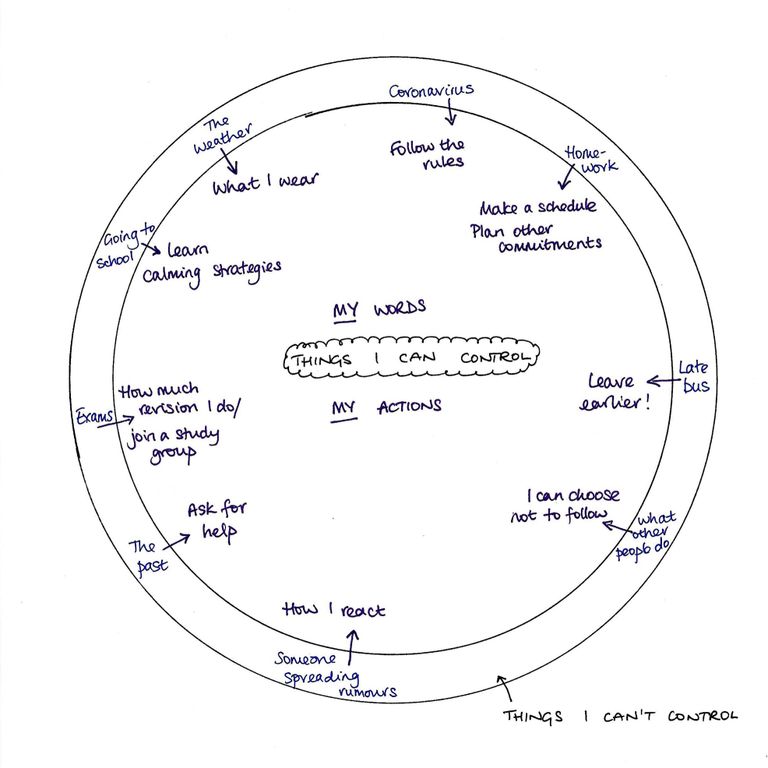 Coronavirus
Follow the
rules
The
weather
What I wear
Home-
work
Make a schedule
Plan other
commitments
Going to
school
Learn
calming strategies
MY WORDS
THINGS I CAN CONTROL
MY ACTIONS
Late
bus
Leave
earlier!
Exams
How much
revision I do/
join a study
group
I can choose
not to follow
what
other
people do
Ask for
help
The
past
How I react
Someone
spreading
rumours
THINGS I CAN'T CONTROL